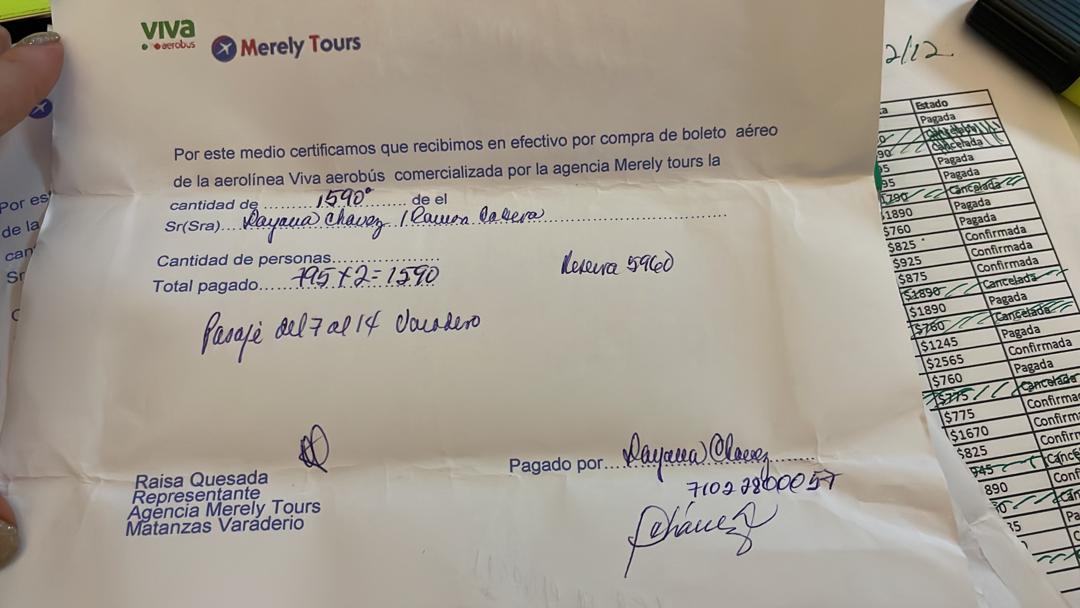 viva
aerobus
Merely Tours
Por este medio certificamos que recibimos en efectivo por compra de boleto aéreo
de la aerolínea Viva aerobús comercializada por la agencia Merely tours la
cantidad de ........ 1590° ........ de el
Sr(Sra).... Dayana Chavez / Ramon ........
Cantidad de personas..................
Total pagado...... 795 x 2 = 1590
5960
Pasaje del 7 al 14 Varadero
Raisa Quesada
Representante
Agencia Merely Tours
Matanzas Varaderio
Pagado por... Dayana Chavez
71022800057
Por es
de la
can
Sr
C
2/12
a Estado
Pagada
Cancelada
90 Cancelada
95 Pagada
95 Pagada
1290 Cancelada
$1890 Pagada
$760 Pagada
$825 Confirmada
$925 Confirmada
$875 Confirmada
$1890 Cancelada
$1890 Pagada
$760 Cancelada
$1245 Pagada
$2565 Confirmada
$760 Pagada
$775 Cancelada
$775 Confirma
$1670 Confirm
$825 Confirm
945 Cance
890 Confi